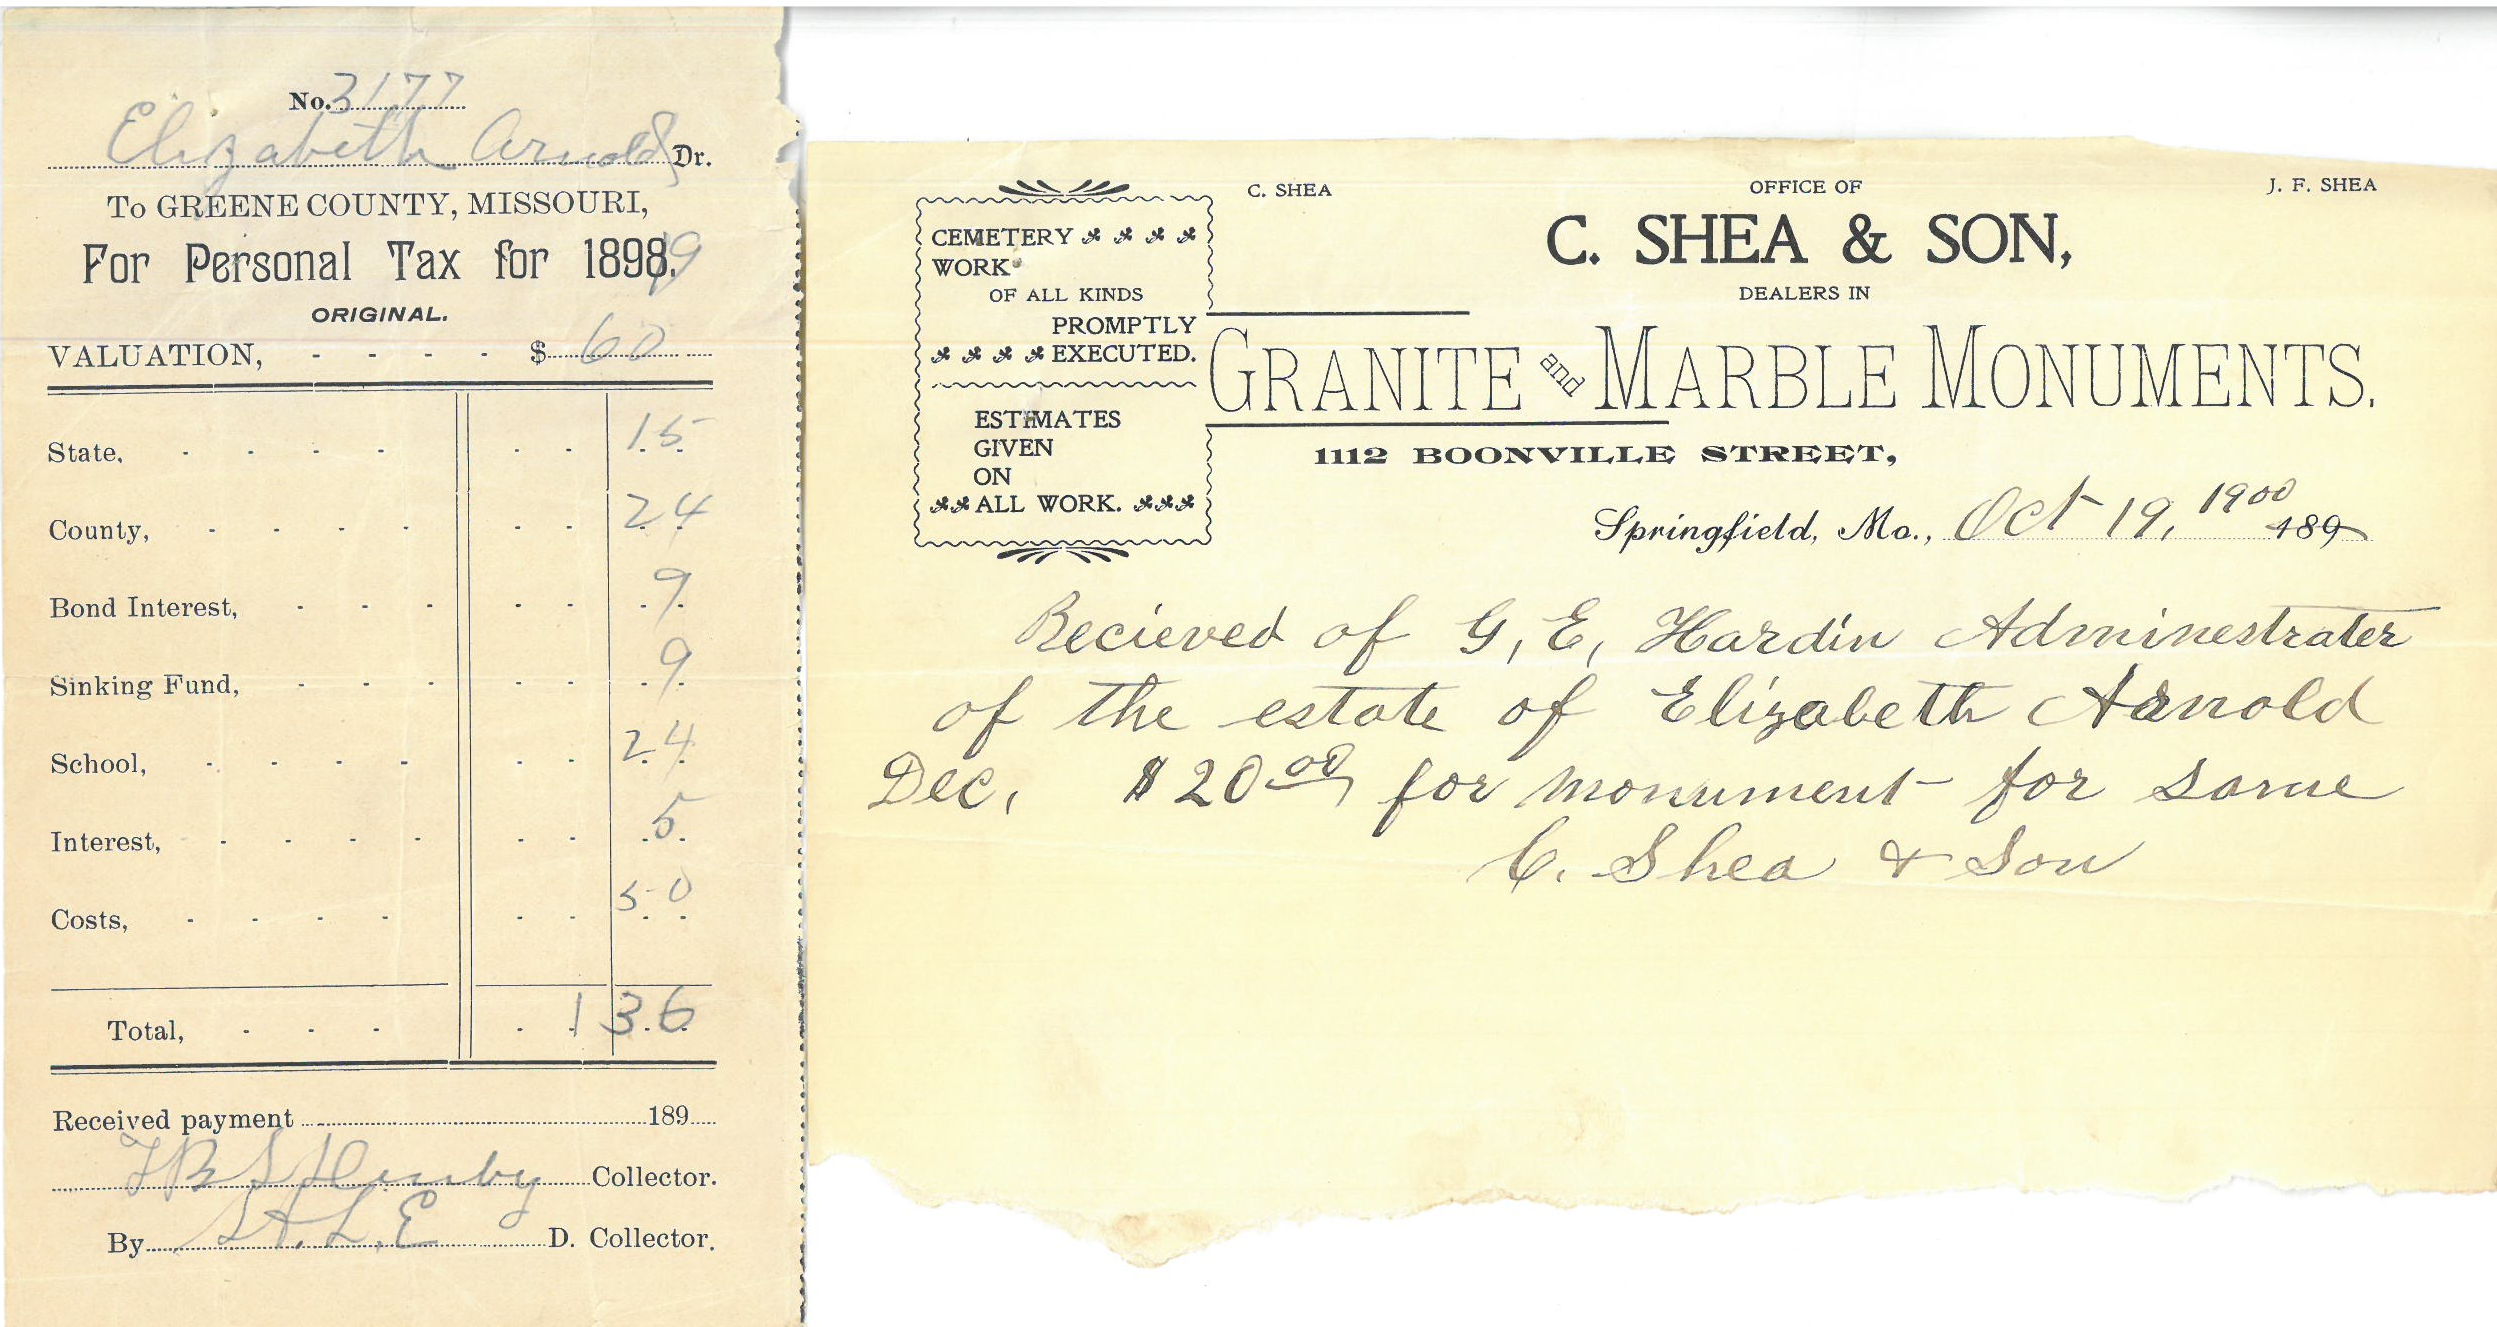 No. 3177
Elizabeth Arnold Dr.
To GREENE COUNTY, MISSOURI,
For Personal Tax for 1898. 9
ORIGINAL.
VALUATION, - - - - $ 60
State, 15
County, 24
Bond Interest, 9
Sinking Fund, 9
School, 24
Interest, 5
Costs, 50
Total, 1 36
Received payment 189
Collector.
By D. Collector.
C. SHEA
OFFICE OF
J. F. SHEA
C. SHEA & SON,
DEALERS IN
GRANITE and MARBLE MONUMENTS.
1112 BOONVILLE STREET,
CEMETERY
WORK
OF ALL KINDS
PROMPTLY
EXECUTED.
ESTIMATES
GIVEN
ON
ALL WORK.
Springfield, Mo., Oct 19, 1900 189
Recieved of G, E, Hardin Adminestrater
of the estate of Elizabeth Arnold
Dec, $20.00 for monument for same
C. Shea & Son